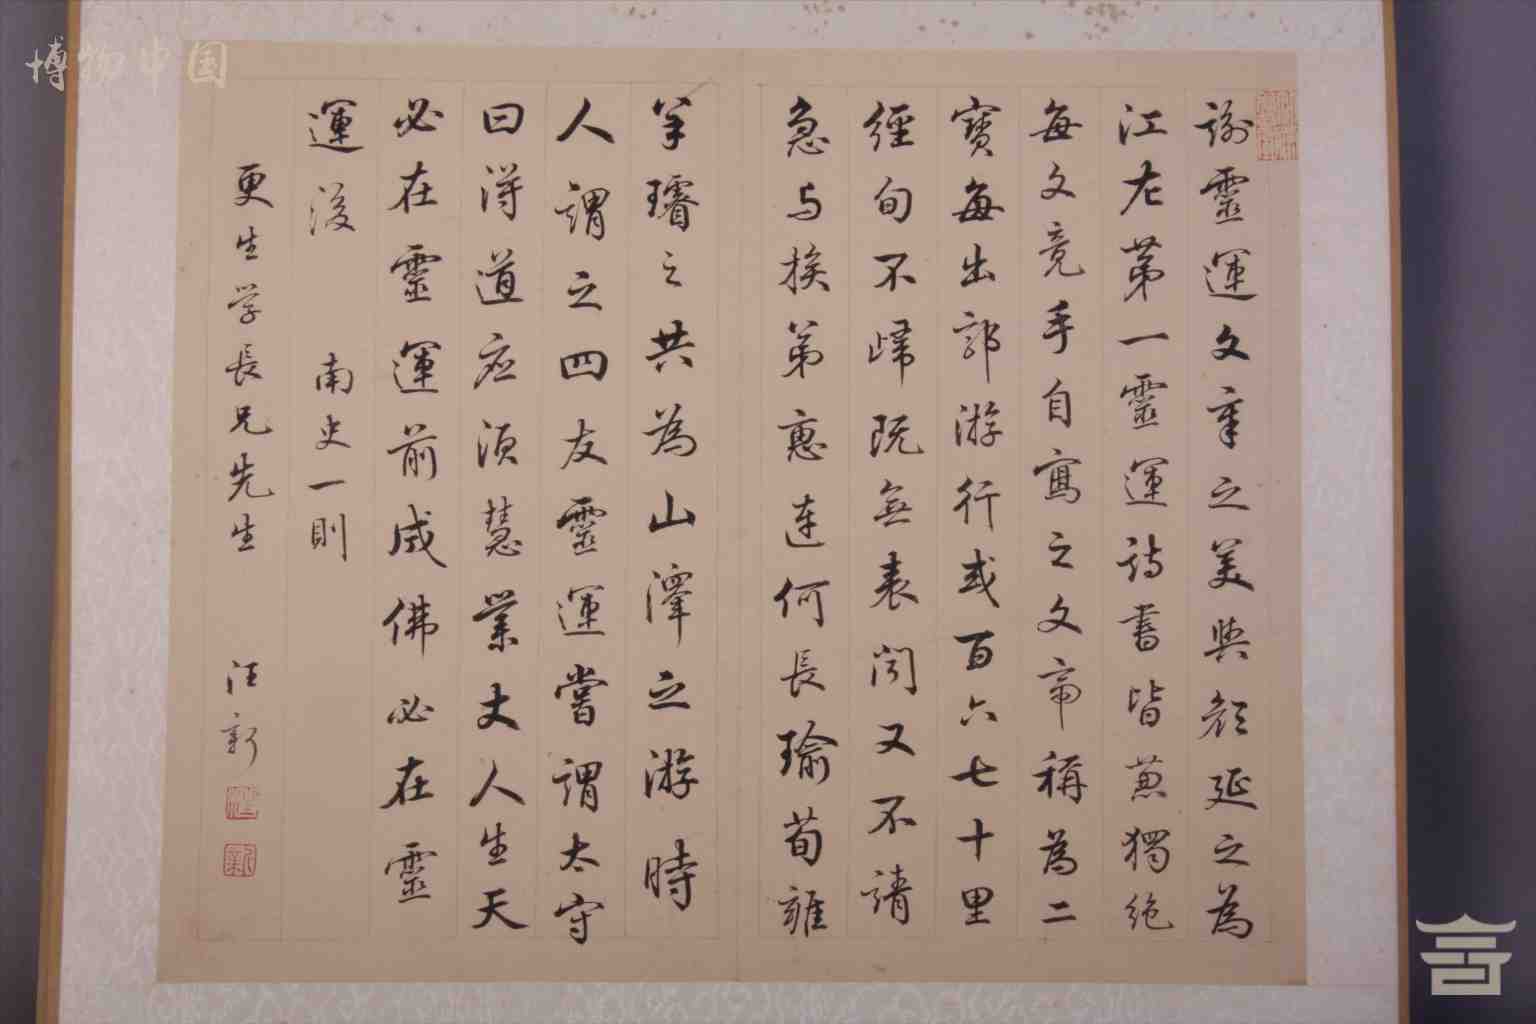 謝靈運文章之美與顏延之為
江左第一靈運詩書皆兼獨絕
每文竟手自寫之文帝稱為二
寶每出郭游行或百六七十里
經旬不歸既無表聞又不請
急与族弟惠連何長瑜荀雍
羊璿之共為山澤之游時
人謂之四友靈運嘗謂太守
曰得道应須慧業丈人生天
必在靈運前成佛必在靈
運後 南史一則
更生学長兄先生 汪新
汪
新
博物中国